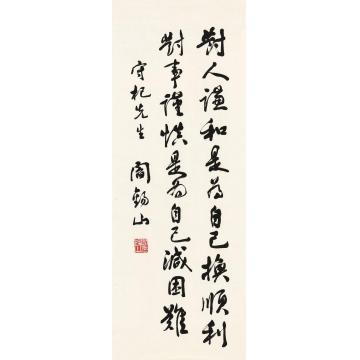 對人謙和是為自己換順利
對事謹慎是為自己減困難
守杞先生
閻錫山